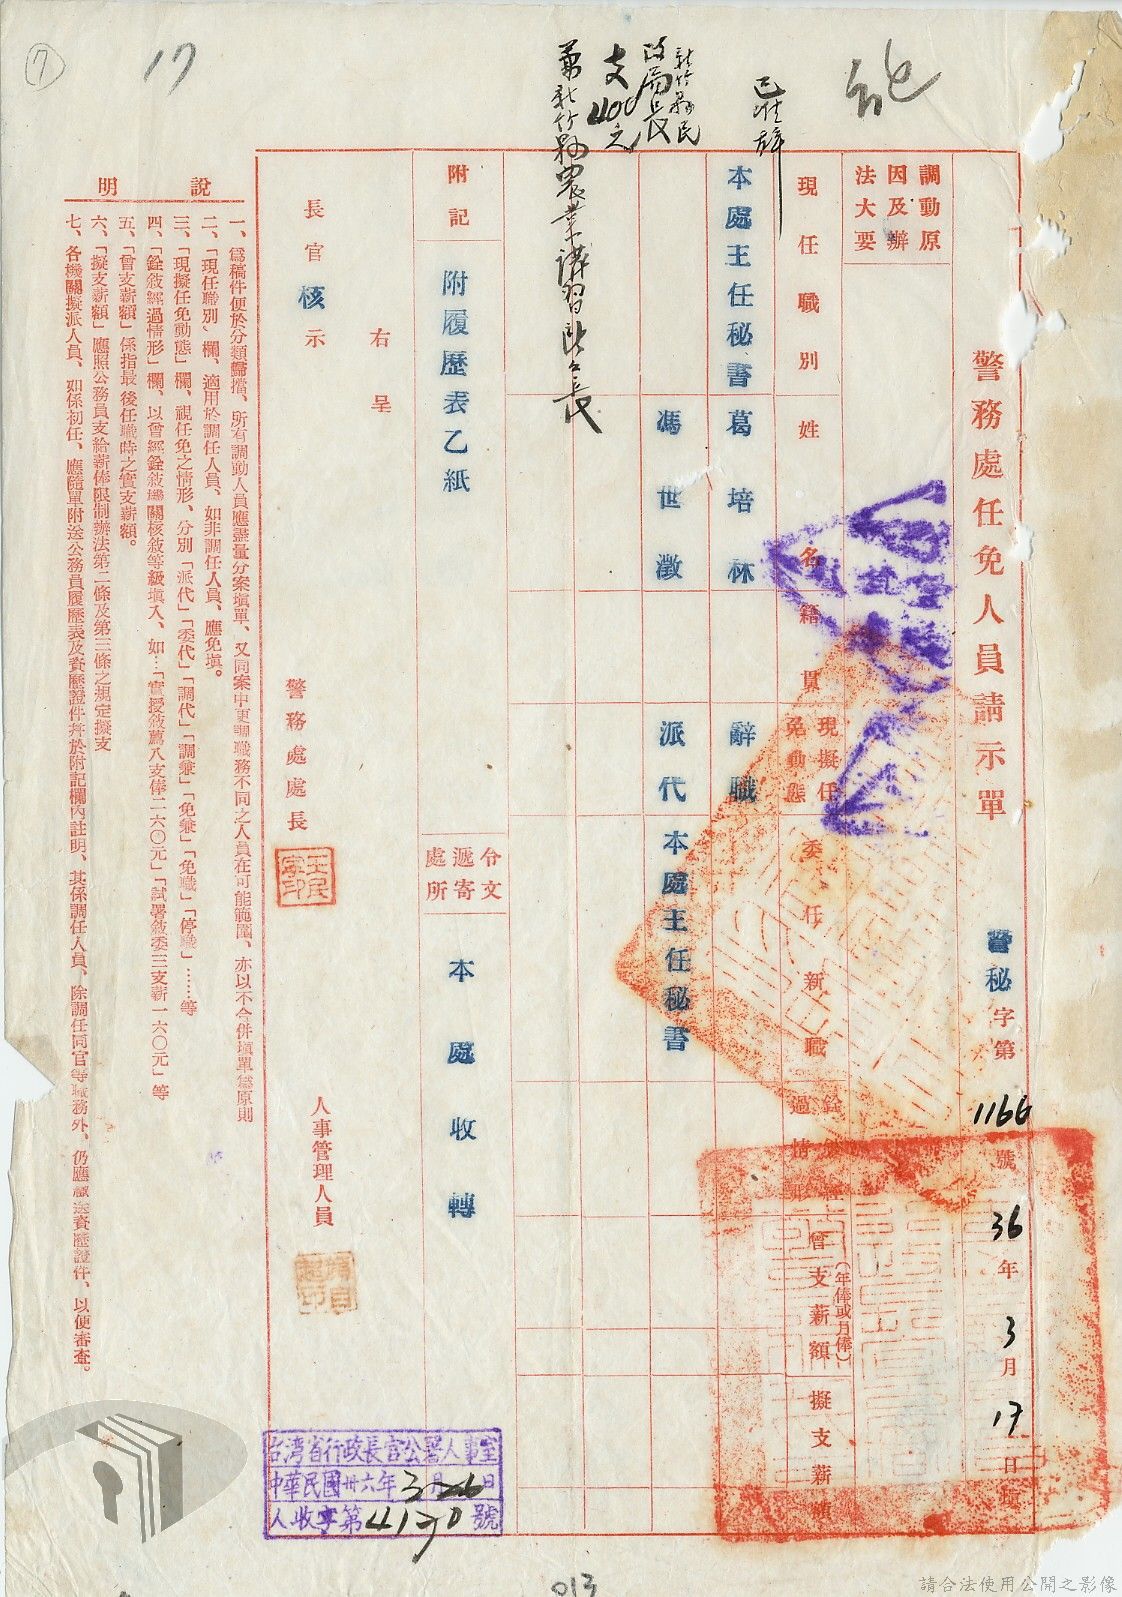 ⑦
17
已准辭
新竹縣民
政局長
支400元
兼新竹縣農業講習所所長
警務處任免人員請示單
警秘字第1166號
36年3月17日填
調動原
因及辦
法大要
現任職別
姓名
籍貫
現擬任
免動態
委任新職
銓敘經
過情形
曾支薪額
(年俸或月俸)
擬支薪額
本處主任秘書
葛培林
辭職
馮世澂
派代
本處主任秘書
附記
附履歷表乙紙
令文
遞寄
處所
本處收轉
右呈
長官核示
警務處處長
王民寧印
人事管理人員
說明
一、為稿件便於分類歸擋、所有調動人員應盡量分案填單、又同案中更調職務不同之人員在可能範圍、亦以不合併填單為原則
二、「現任職別」欄、適用於調任人員、如非調任人員、應免填。
三、「現擬任免動態」欄、視任免之情形、分別「派代」「委代」「調代」「調兼」「免兼」「免職」「停職」……等
四、「銓敘經過情形」欄、以曾經銓敘機關核敘等級填入、如…「實授敘薦八支俸二六〇元」「試署敘委三支薪一六〇元」等
五、「曾支薪額」係指最後任職時之實支薪額。
六、「擬支薪額」應照公務員支給薪俸限制辦法第二條及第三條之規定擬支
七、各機關擬派人員、如係初任、應隨單附送公務員履歷表及資歷證件并於附記欄內註明、其係調任人員、除調任同官等職務外、仍應檢送資歷證件、以便審查。
台湾省行政長官公署人事室
中華民國卅六年3月26日
人收字第4170號
013
請合法使用公開之影像